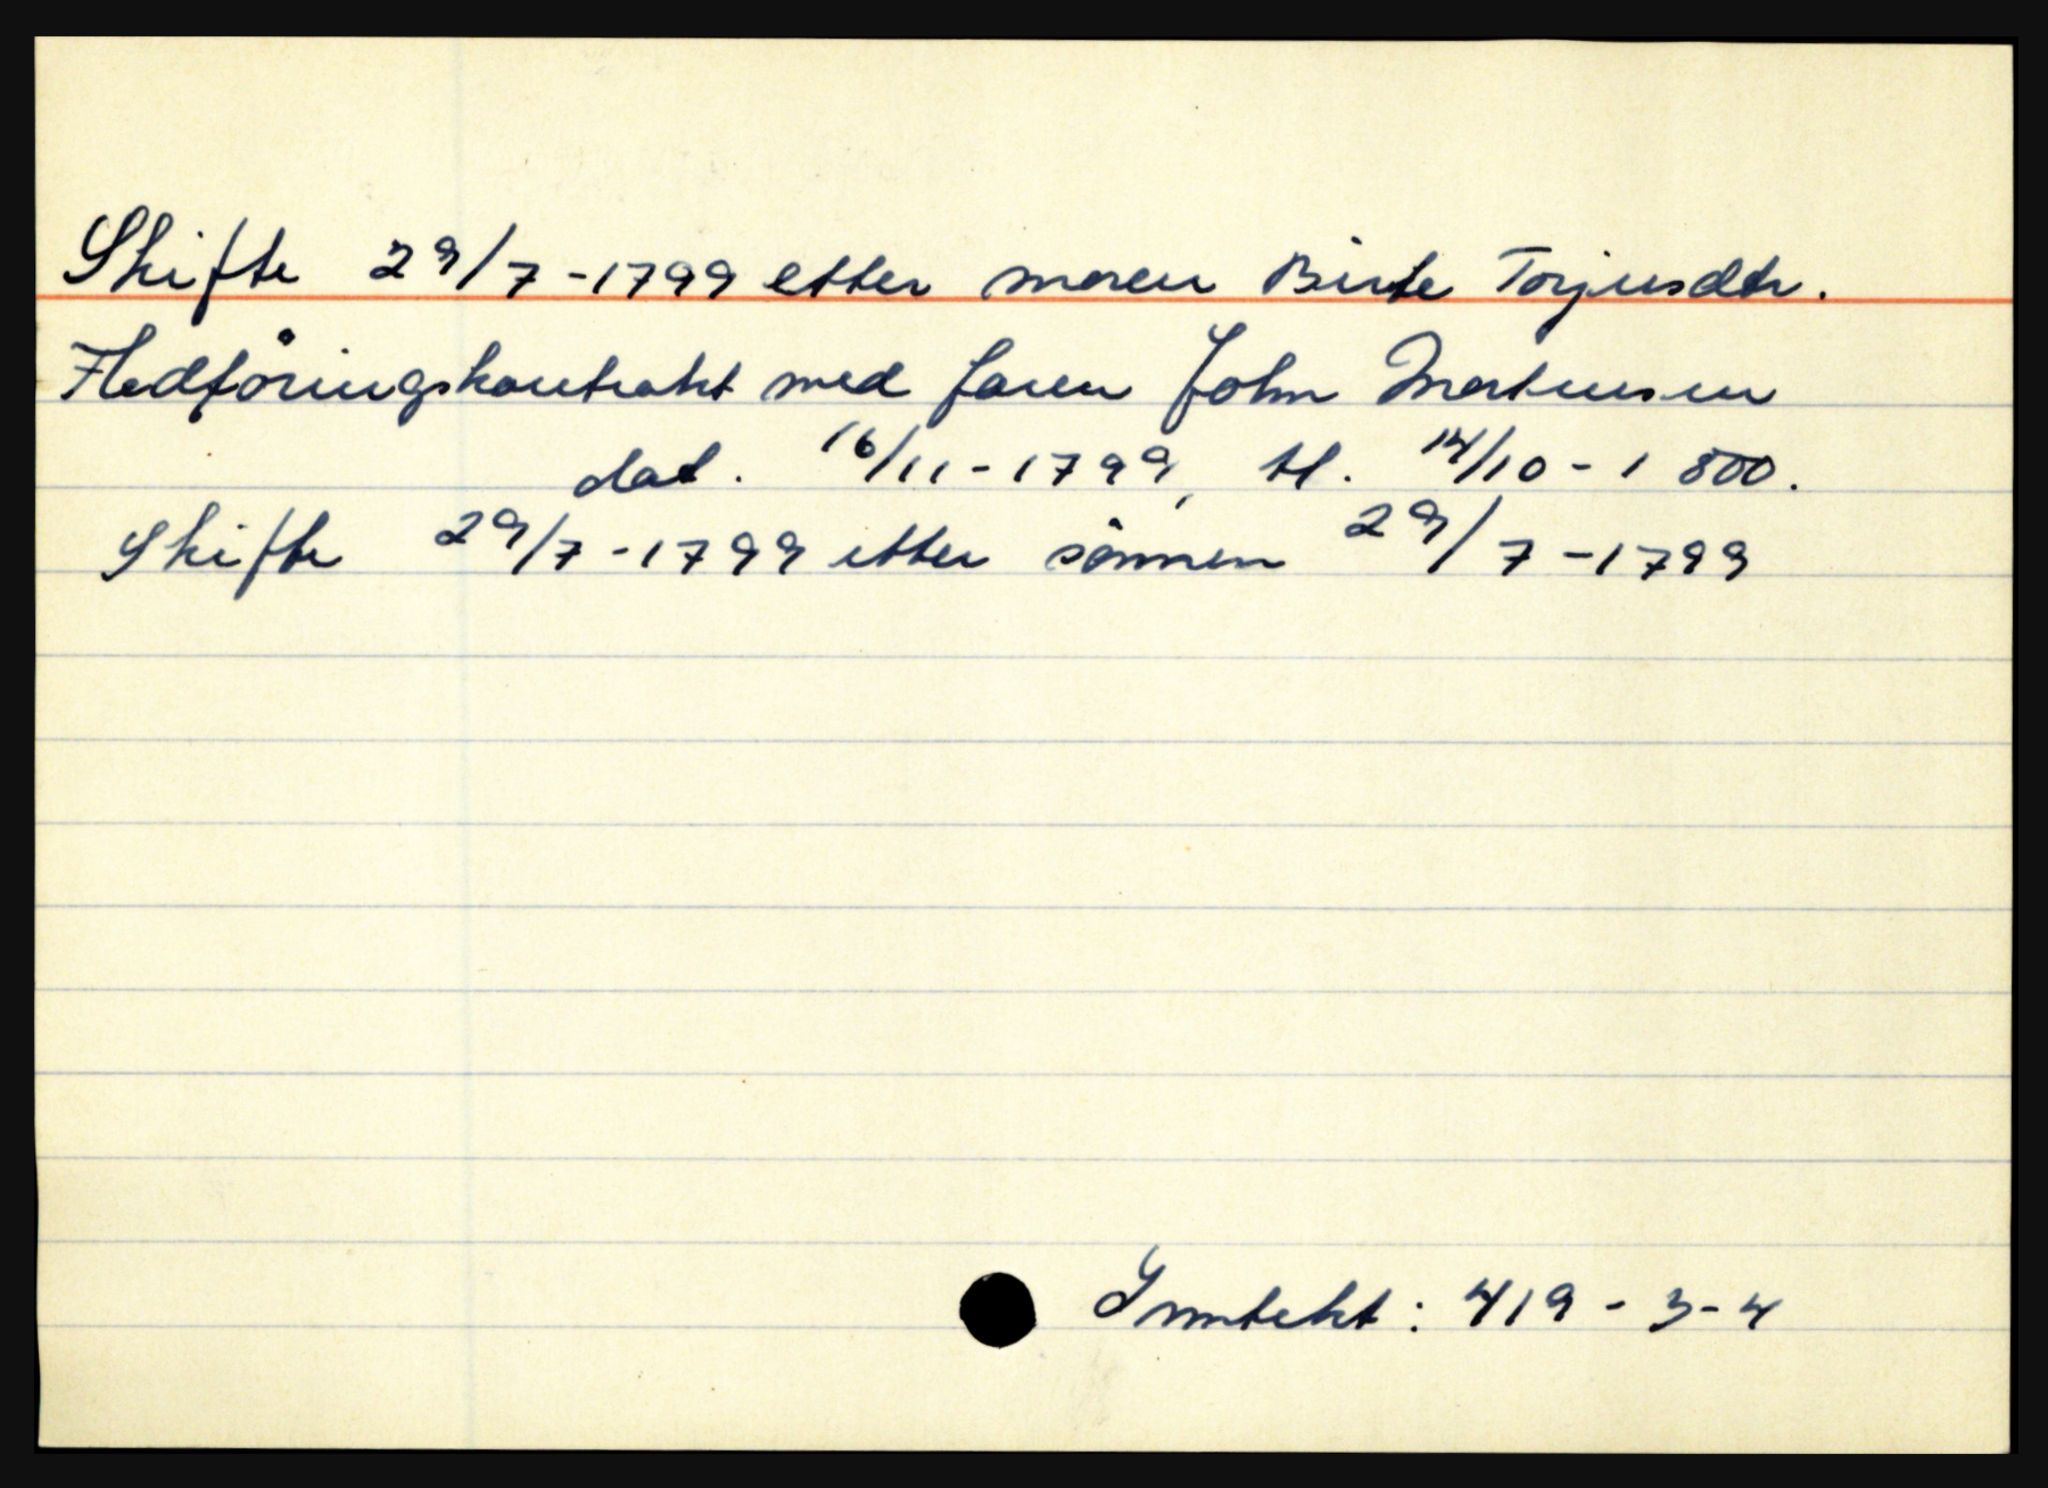 Skifte 29/7-1799 etter moren Birte Torjusdtr.
Fledföringskontrakt med faren John Mortensen
dat. 16/11-1799, tl. 14/10-1800.
Skifte 29/7-1799 etter sönnen 29/7-1799
Inntekt: 419-3-4